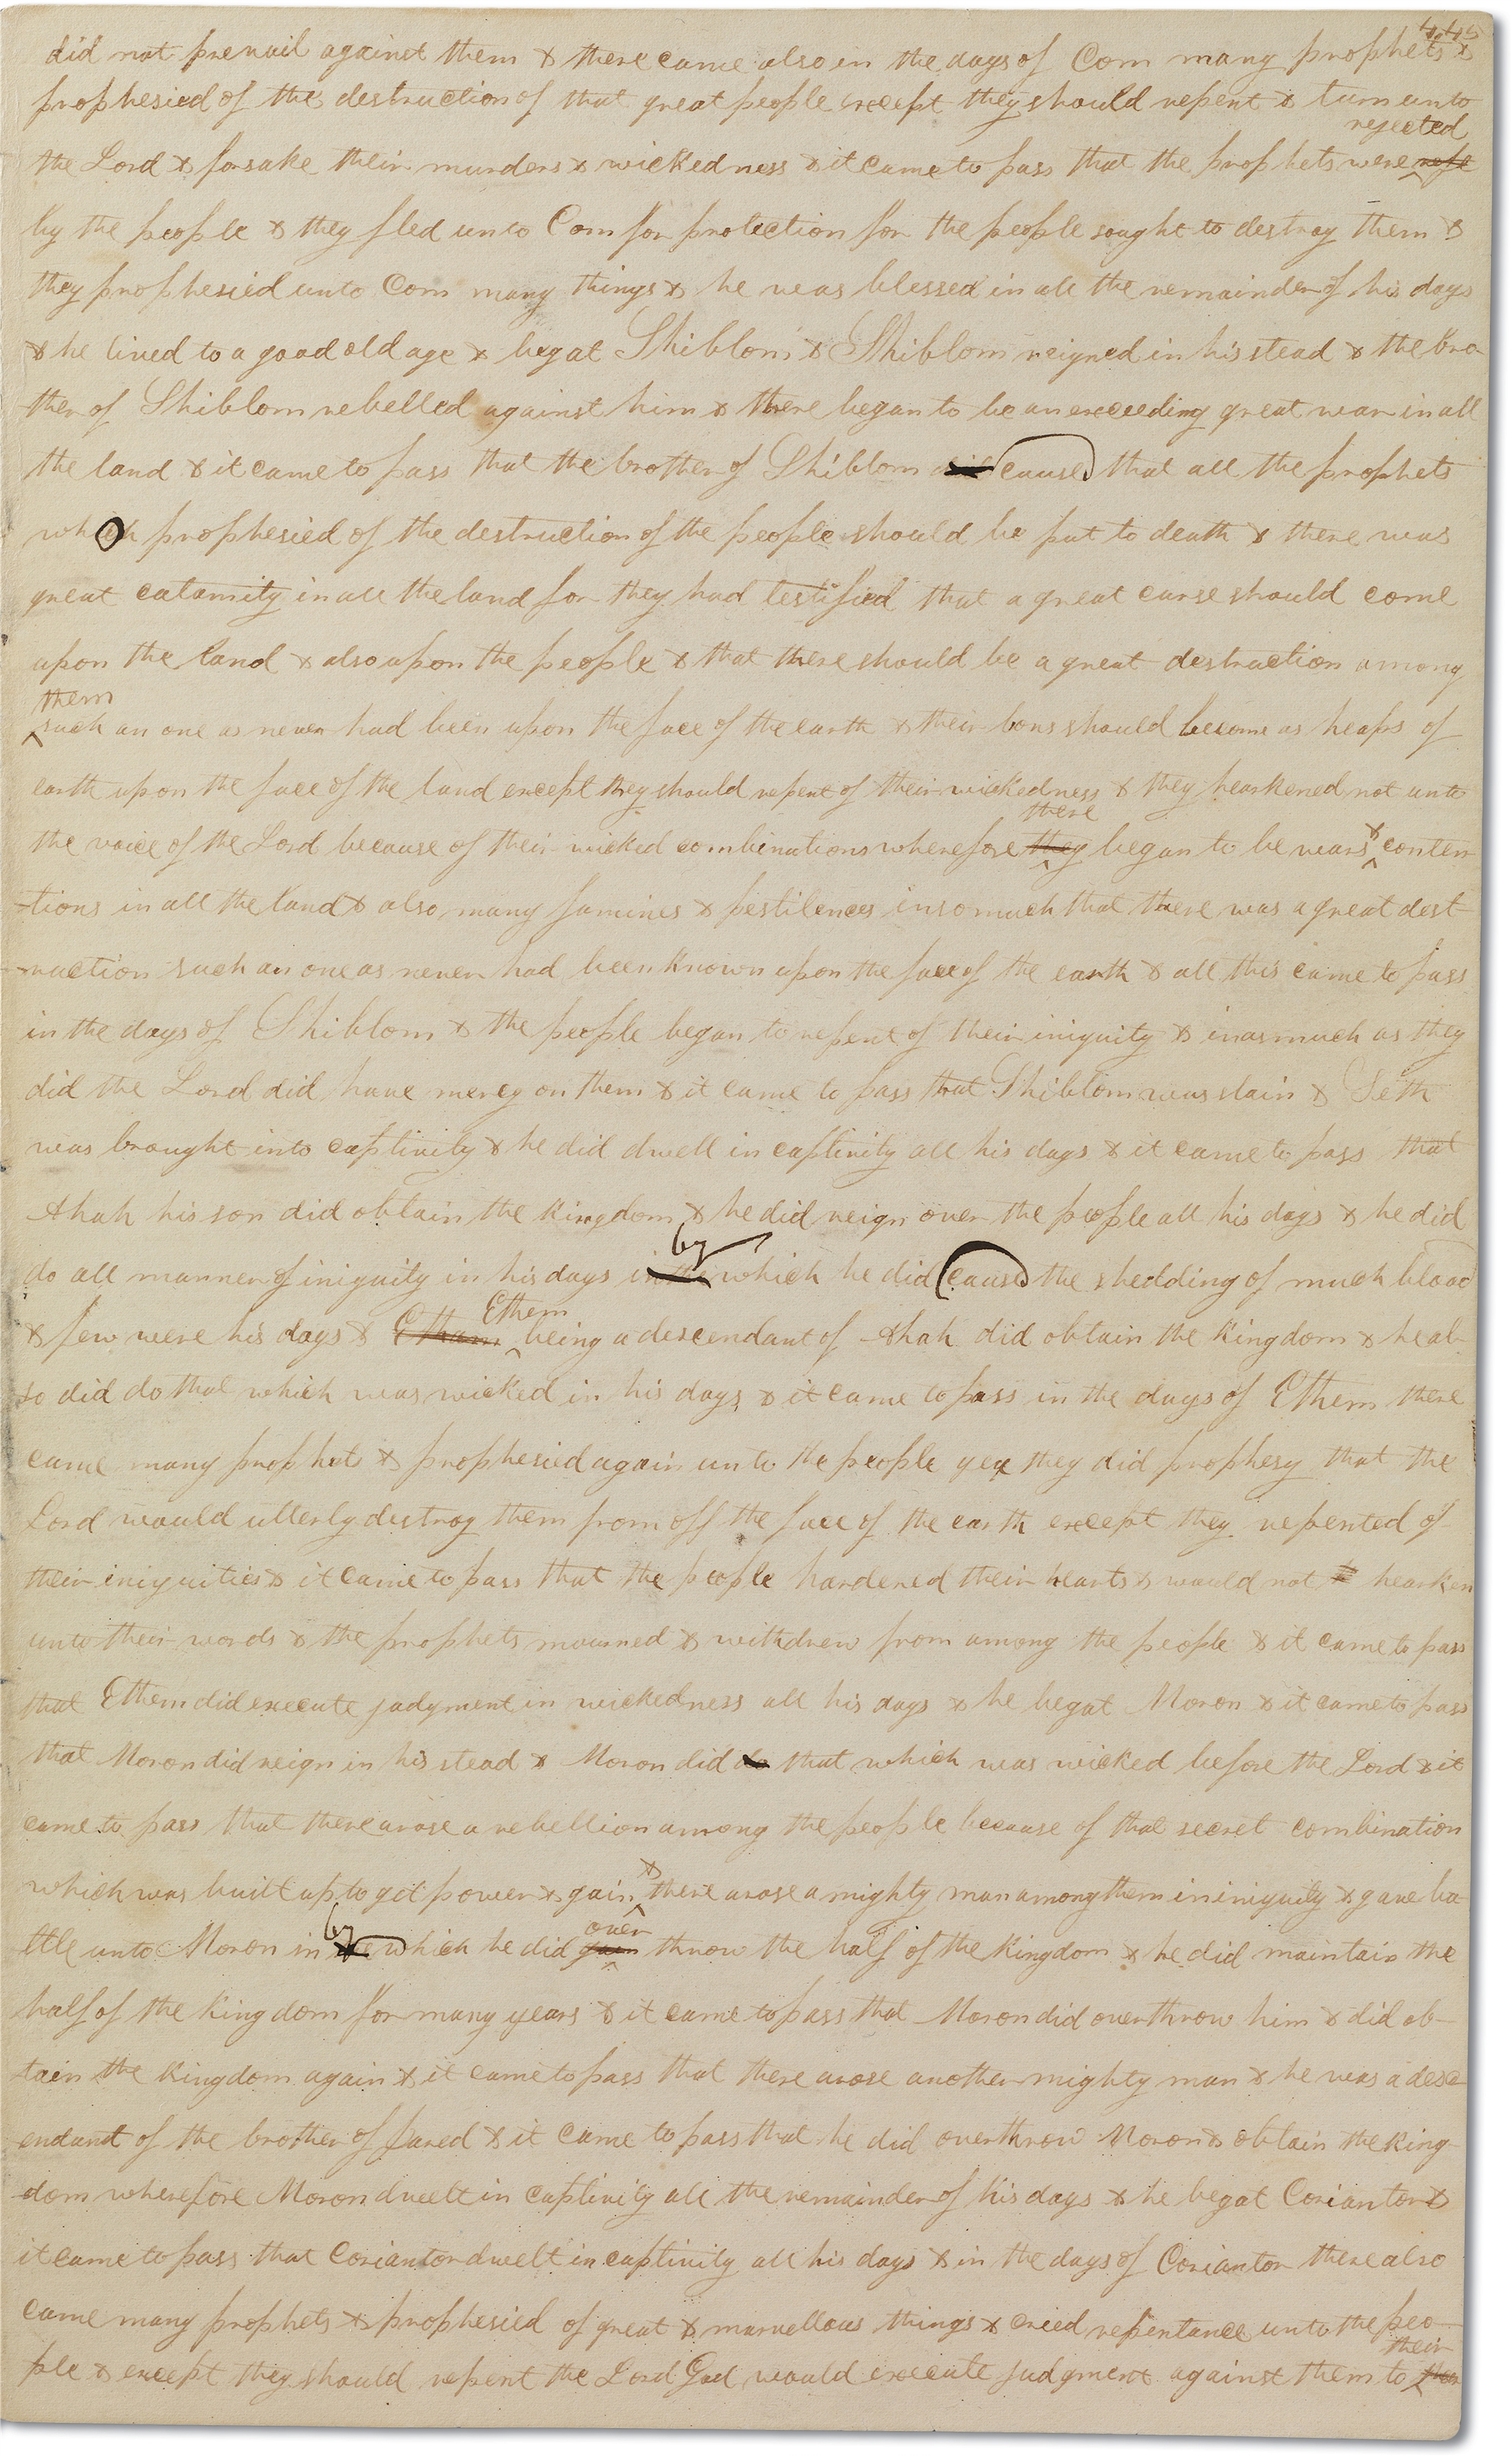 445
did not prevail against them & there came also in the days of Com many prophets &
prophesied of the destruction of that great people except they should repent & turn unto
rejected
the Lord & forsake their murders & wickedness & it came to pass that the prophets were reje
by the people & they fled unto Com for protection for the people sought to destroy them &
they prophesied unto Com many things & he was blessed in all the remainder of his days
& he lived to a good old age & begat Shiblom & Shiblom reigned in his stead & the bro-
ther of Shiblom rebelled against him & there began to be an exceeding great war in all
the land & it came to pass that the brother of Shiblom did caused that all the prophets
who prophesied of the destruction of the people should be put to death & there was
great calamity in all the land for they had testified that a great curse should come
upon the land & also upon the people & that there should be a great destruction among
them
such an one as never had been upon the face of the earth & their bons should become as heaps of
earth upon the face of the land except they should repent of their wickedness & they hearkened not unto
there
the voice of the Lord because of their wicked combinations wherefore they began to be wars & conten
-tions in all the land & also many famines & pestilences insomuch that there was a great dest-
-ruction such an one as never had been known upon the face of the earth & all this came to pass
in the days of Shiblom & the people began to repent of their iniquity & inasmuch as they
did the Lord did have mercy on them & it came to pass that Shiblom was slain & Seth
was brought into captivity & he did dwell in captivity all his days & it came to pass that
Ahah his son did obtain the kingdom & he did reign over the people all his days & he did
by
do all manner of iniquity in his days in the which he did cause the shedding of much blood
Ethem
& few were his days & Etham being a descendant of Ahah did obtain the kingdom & he al-
so did do that which was wicked in his days & it came to pass in the days of Ethem there
came many prophets & prophesied again unto the people yea they did prophesy that the
Lord would utterly destroy them from off the face of the earth except they repented of
their iniquities & it came to pass that the people hardened their hearts & would not h hearken
unto their words & the prophets mourned & withdrew from among the people & it came to pass
that Ethem did execute judgment in wickedness all his days & he begat Moron & it came to pass
that Moron did reign in his stead & Moron did do that which was wicked before the Lord & it
came to pass that there arose a rebellion among the people because of that secret combination
which was built up to get power & gain & there arose a mighty man among them in iniquity & gave ba-
by over
ttle unto Moron in the which he did gain throw the half of the kingdom & he did maintain the
half of the kingdom for many years & it came to pass that Moron did overthrow him & did ob-
tain the kingdom again & it came to pass that there arose another mighty man & he was a desc-
endant of the brother of Jared & it came to pass that he did overthrow Moron & obtain the king-
dom wherefore Moron dwelt in captivity all the remainder of his days & he begat Coriantor &
it came to pass that Coriantor dwelt in captivity all his days & in the days of Coriantor there also
came many prophets & prophesied of great & marvellous things & cried repentance unto the peo-
their
ple & except they should repent the Lord God would execute judgment against them to